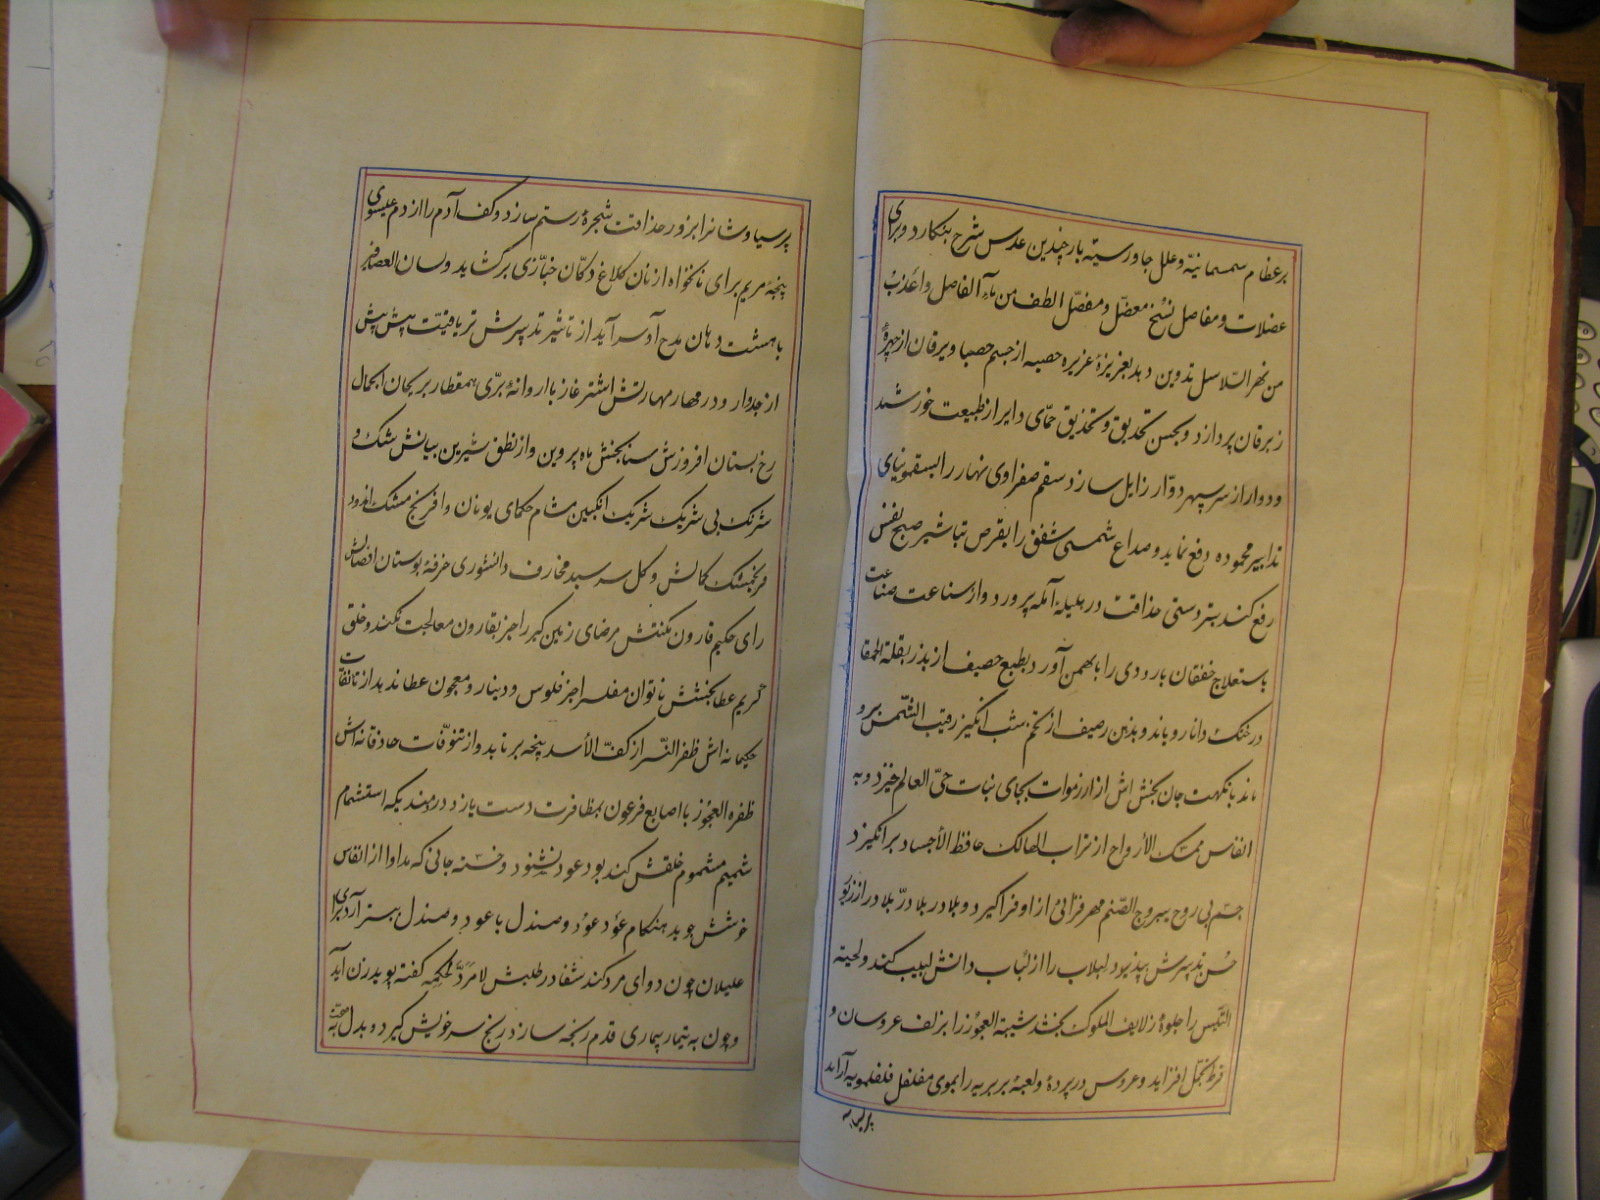 بر عظام سمسمانیّه و علل جاورسیّه بار چندین عدس شرح بنگارد و برای
عضلات و مفاصل نسخ معضّل و مفصّل الطف من مآء الفاصل و اعذب
من نهر السّلاسل تدوین دهد بغریزهٔ عزیره حصبه از جسم حصبا و یرقان از چهرهٔ
زبرقان پردازد و بحسن تحدیق و تحذیق حمّای دایر از طبیعت خورشید
و دوار از سر سپهر دوّار زایل سازد سقم صفراوی نهار را بسقمونیای
تدابیر محموده دفع نماید و صداع شمسی شفق را بقرص تباشیر صبح نفس
رفع کند بتردستی حذاقت در هلیله آمله پرورد و از سناعت صناعت
باستعلاج خفقان بارودی را بابهمن آورد بطبع حصیف از بذر بقلة الحمقا
در خنک دانا رویاند و بذهن رصیف از تخم شب انگیز رقیب الشّمس برو
ماند بانکهت جان بخش اش از ارزموات بجای نبات حیّ العالم خیزد و به
انفاس ممسک الأرواح از تراب الهالک حافظ الأجساد برانگیزد
جسم بی روح یبروج الصّنم مهر فزائی از او فراگیرد و بلادر بلا درّ بلادر از زیور
حسن تدبیرش پذیرد لبلاب را از لباب دانش لبیب کند و لحیة
التّیس را جلوهٔ زلایف الملوک بخشد شیبة العجوز را بزلف عروسان و
قرط تجمّل افزاید و عروس در پرده و لعبهٔ بربریه را بموی مفلفل فلفلمویه آراید
پر سیاوشانرا بزور حذاقت شجرهٔ رستم سازد و کف آدم را از دم عیسوی
پنجهٔ مریم برای نانخواه از نان کلاغ دکّان خبّازی برگشاید و لسان العصافیر
با هشت دهان مدح آور سراید از تاثیر تدبیرش تریاقیّت پیش بیش
از جدوار و در مهار مهارتش اشترغاز با اروانهٔ برّی همقطار ریحان الجمال
رخ بستان افروزش سنابخش ماه پروین و از نطق شیرین بیانش شک و
شرنگ بی شریک شریک انگبین مشام حکمای یونان و افرنج مشک اندود
فرنجمشک کمالش و گل سرسبد مخارف دانشوری خرفهٔ بوستان افضالش
رای حکیم قارون مکنتش مرضای زمین گیر را جز بقارون معالجت نکند و خلق
کریم عطا بخشش ناتوان مفلس را جز فلوس و دینار و معجون عطا ندهد از تانّقات
حکیمانه اش ظفر النّسر از کفّ الأسد پنجه بر تابد و از تنوّقات حاذقانه اش
ظفره العجوز با اصابع فرعون بمظافرت دست یازد در مهندیکه استشمام
شمیم مشموم خلقش کند بود عود نشنود و خسته جانی که مداوا از انفاس
خوشش جوید هنگام عَود عُود و صندل با عود و صندل بستر آرد برای
علیلان چون دوای مرد کند شفا در طلبش لا مردّ لحکمه گفته پوید رزن آید
و چون به تیمار بیماری قدم رنجه سازد رنج سر خویش گیرد و بدل صحّت به